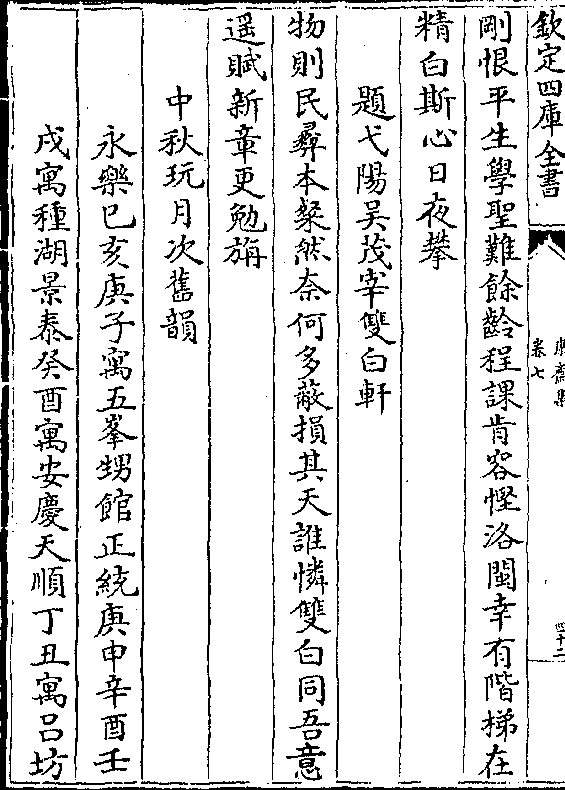 欽定四庫全書
康齋集
卷七
四十二
剛恨平生學聖難餘齡程課肯容慳洛閩幸有階梯在
精白斯心日夜攀
題弋陽吳茂宰雙白軒
物則民彞本粲然奈何多蔽損其天誰憐雙白同吾意
遥賦新章更勉旃
中秋玩月次舊韻
永樂己亥庚子寓五峯甥館正統庚申辛酉壬
戌寓種湖景泰癸酉寓安慶天順丁丑寓呂坊